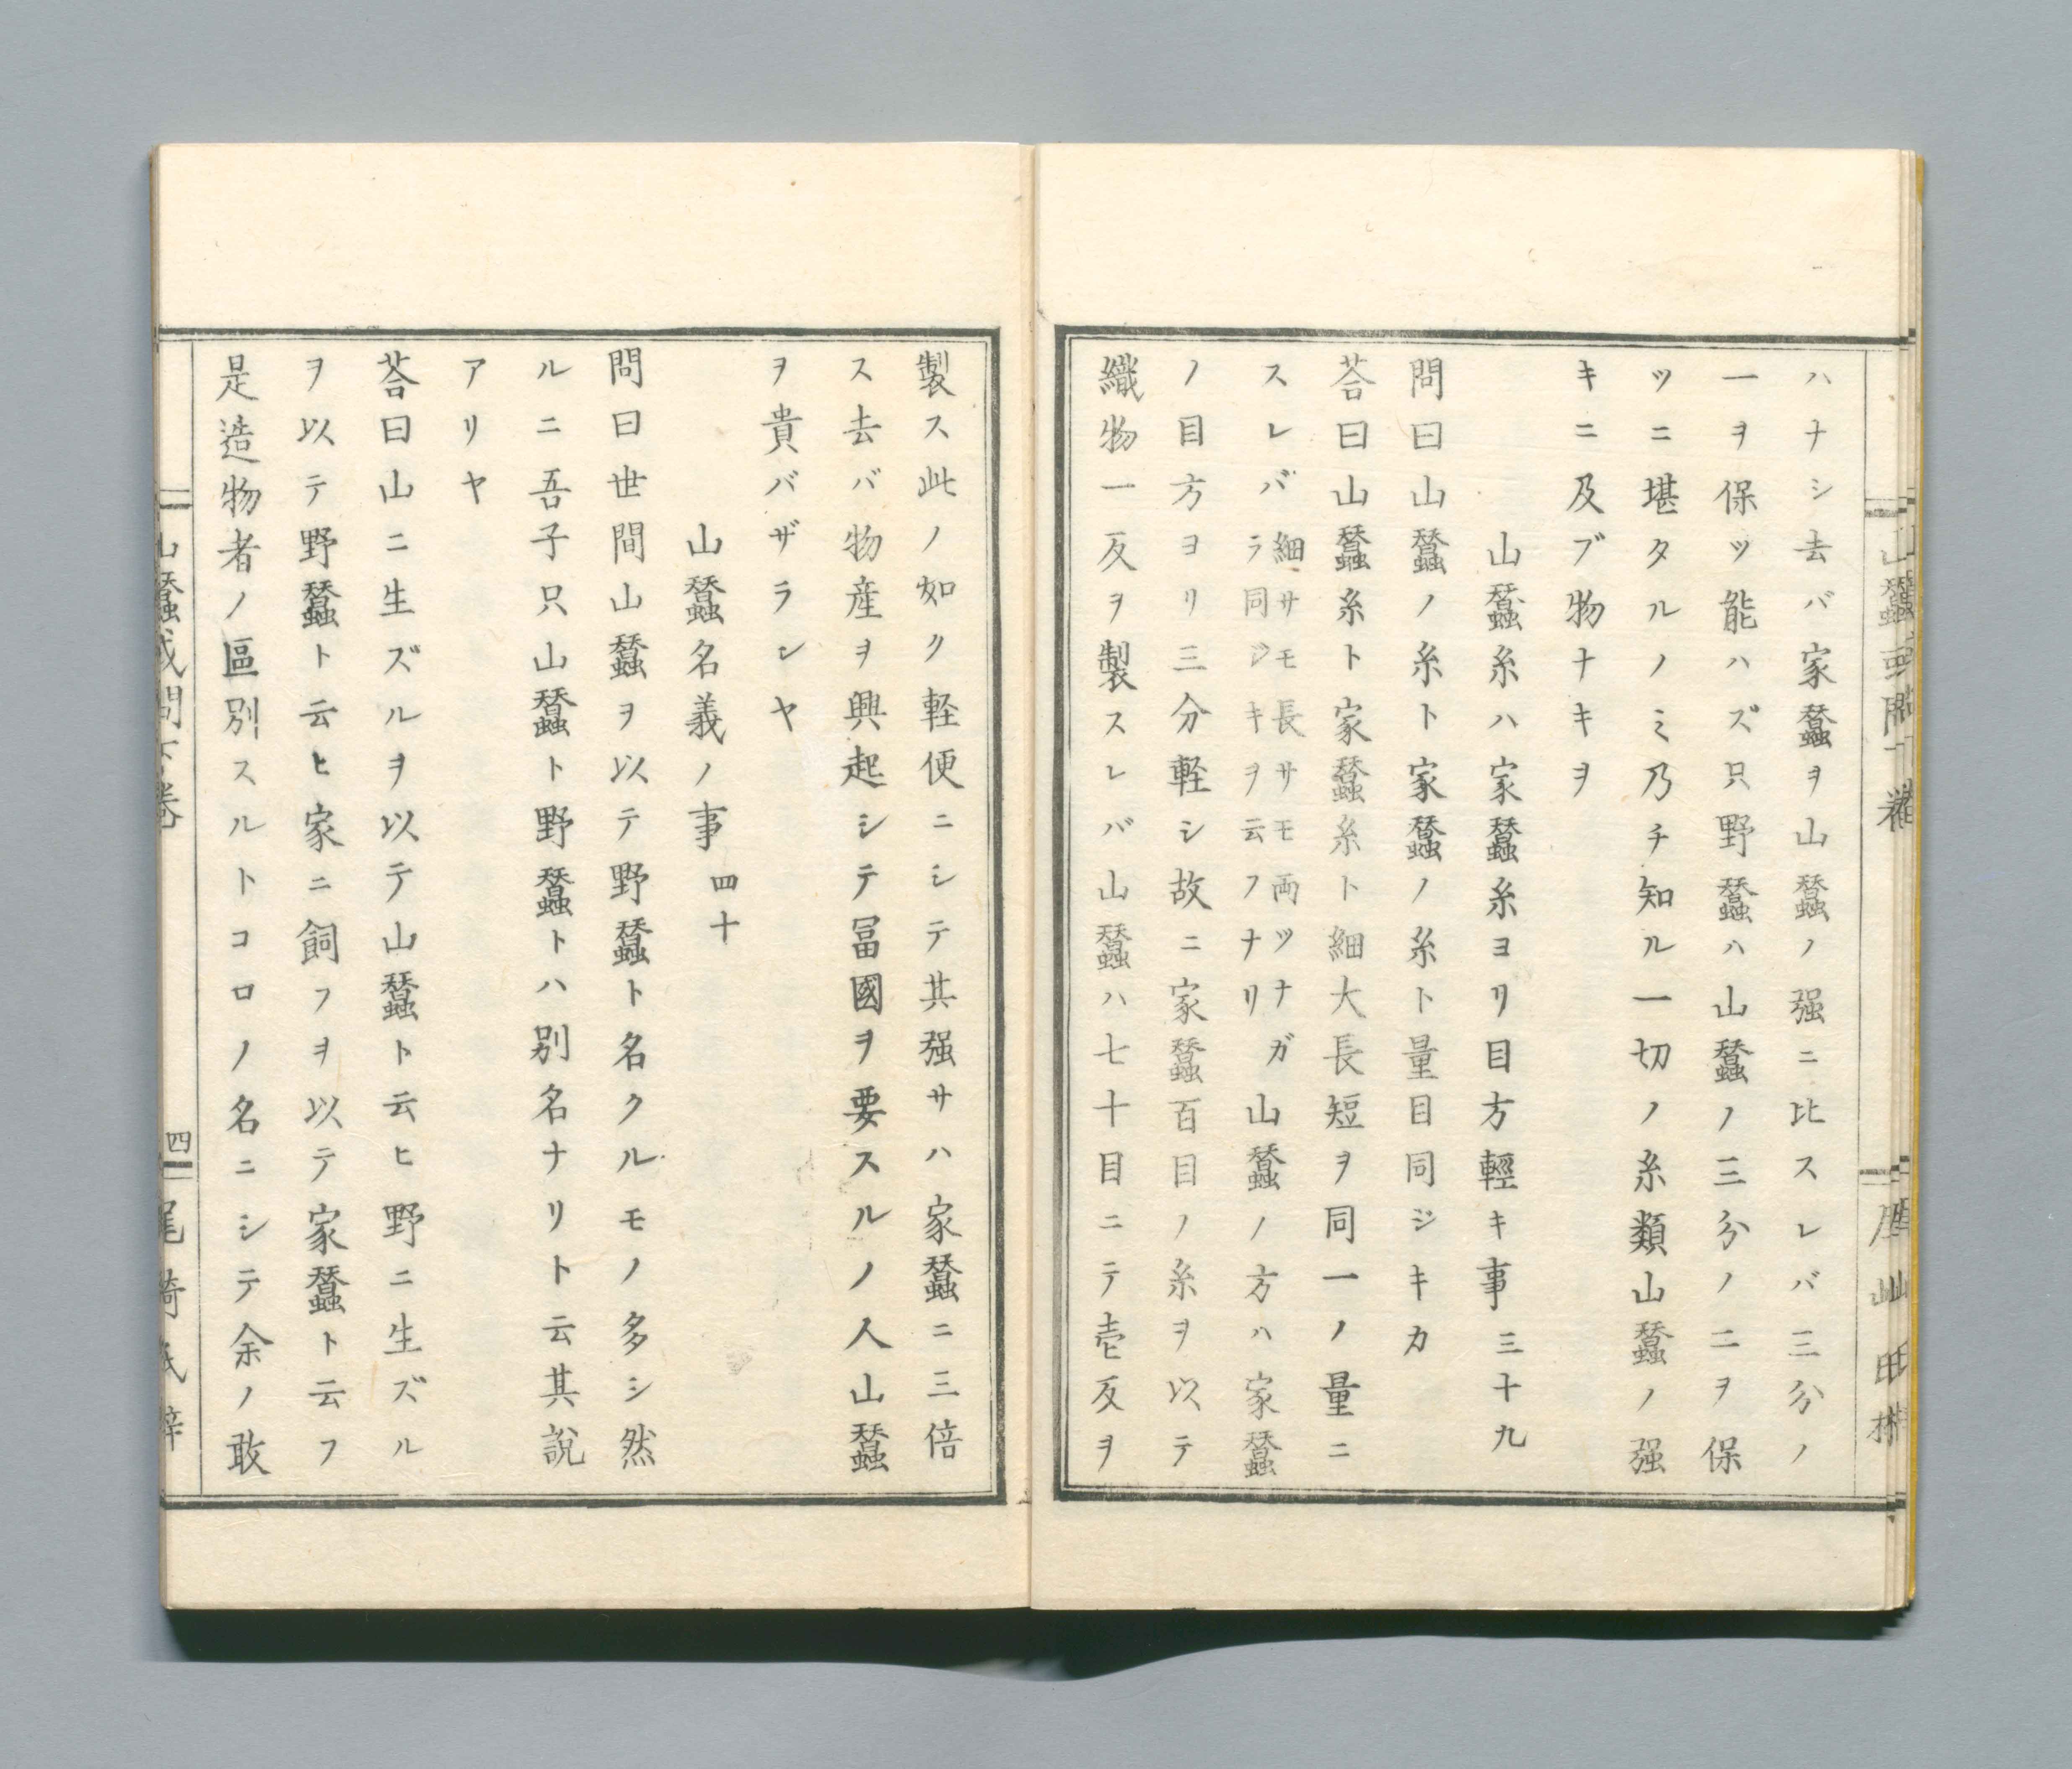 ハナシ去バ家蠶ヲ山蠶ノ强ニ比スレバ三分ノ
一ヲ保ツ能ハズ只野蠶ハ山蠶ノ三分ノ二ヲ保
ツニ堪タルノミ乃チ知ル一切ノ糸類山蠶ノ强
キニ及ブ物ナキヲ
山蠶糸ハ家蠶糸ヨリ目方輕キ事三十九
問曰山蠶ノ糸ト家蠶ノ糸ト量目同ジキカ
荅曰山蠶糸ト家蠶糸ト細大長短ヲ同一ノ量ニ
スレバ細サモ長サモ両ツナガラ同ジキヲ云フナリ山蠶ノ方ハ家蠶
ノ目方ヨリ三分軽シ故ニ家蠶百目ノ糸ヲ以テ
織物一反ヲ製スレバ山蠶ハ七十目ニテ壱反ヲ
製ス此ノ如ク軽便ニシテ其强サハ家蠶ニ三倍
ス去バ物産ヲ興起シテ冨國ヲ要スルノ人山蠶
ヲ貴バザランヤ
山蠶名義ノ事四十
問曰世間山蠶ヲ以テ野蠶ト名クルモノ多シ然
ルニ吾子只山蠶ト野蠶トハ別名ナリト云其説
アリヤ
荅曰山ニ生ズルヲ以テ山蠶ト云ヒ野ニ生ズル
ヲ以テ野蠶ト云ヒ家ニ飼フヲ以テ家蠶ト云フ
是造物者ノ區別スルトコロノ名ニシテ余ノ敢
山蠶或問下巻
四